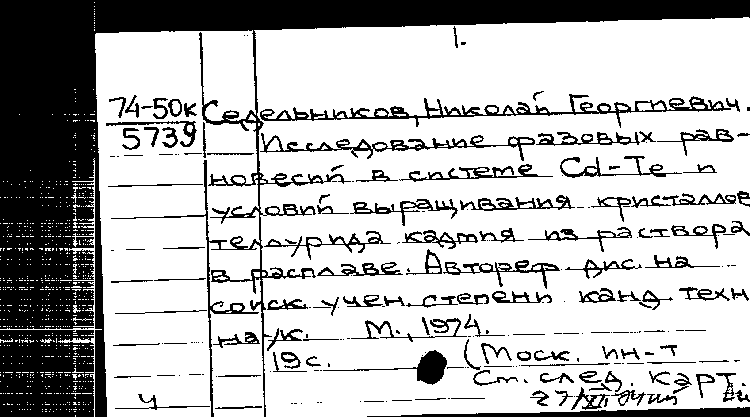 1.
74-50к Седельников, Николай Георгиевич.
5739 Исследование фазовых рав-
новесий в системе Cd-Te и
условий выращивания кристаллов
теллурида кадмия из раствора
в расплаве. Автореф. дис. на
соиск. учен. степени канд. техн.
наук. М., 1974.
19 с. (Моск. ин-т
См. след. карт.
ч 27/XII